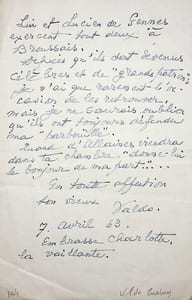 Lui et Lucien de Gennes
exercent tous deux à
Broussais.
Depuis qu'ils sont devenus
célèbres et de "grands patrons"
je n'ai que rarement l'oc-
casion de les retrouver,
mais je ne saurais oublier
qu'ils ont toujours défendu
ma "barbouille".
Quand d'Allaines viendra
dans ta chambre "donne-lui
le bonjour de ma part"...
En toute affection
ton vieux
Valdo.
7. avril 63.
Embrasse Charlotte,
la vaillante.